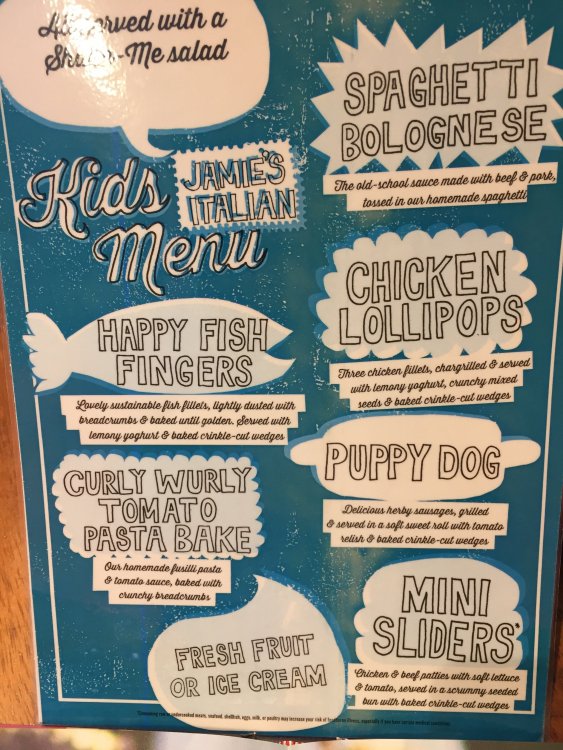 All served with a
Shake-Me salad
Kids
Menu
JAMIE'S
ITALIAN
SPAGHETTI
BOLOGNESE
The old-school sauce made with beef & pork,
tossed in our homemade spaghetti
CHICKEN
LOLLIPOPS
Three chicken fillets, chargrilled & served
with lemony yoghurt, crunchy mixed
seeds & baked crinkle-cut wedges
HAPPY FISH
FINGERS
Lovely sustainable fish fillets, lightly dusted with
breadcrumbs & baked until golden. Served with
lemony yoghurt & baked crinkle-cut wedges
PUPPY DOG
Delicious herby sausages, grilled
& served in a soft sweet roll with tomato
relish & baked crinkle-cut wedges
CURLY WURLY
TOMATO
PASTA BAKE
Our homemade fusilli pasta
& tomato sauce, baked with
crunchy breadcrumbs
MINI
SLIDERS*
Chicken & beef patties with soft lettuce
& tomato, served in a scrummy seeded
bun with baked crinkle-cut wedges
FRESH FRUIT
OR ICE CREAM
*Consuming raw or undercooked meats, seafood, shellfish, eggs, milk, or poultry may increase your risk of foodborne illness, especially if you have certain medical conditions.